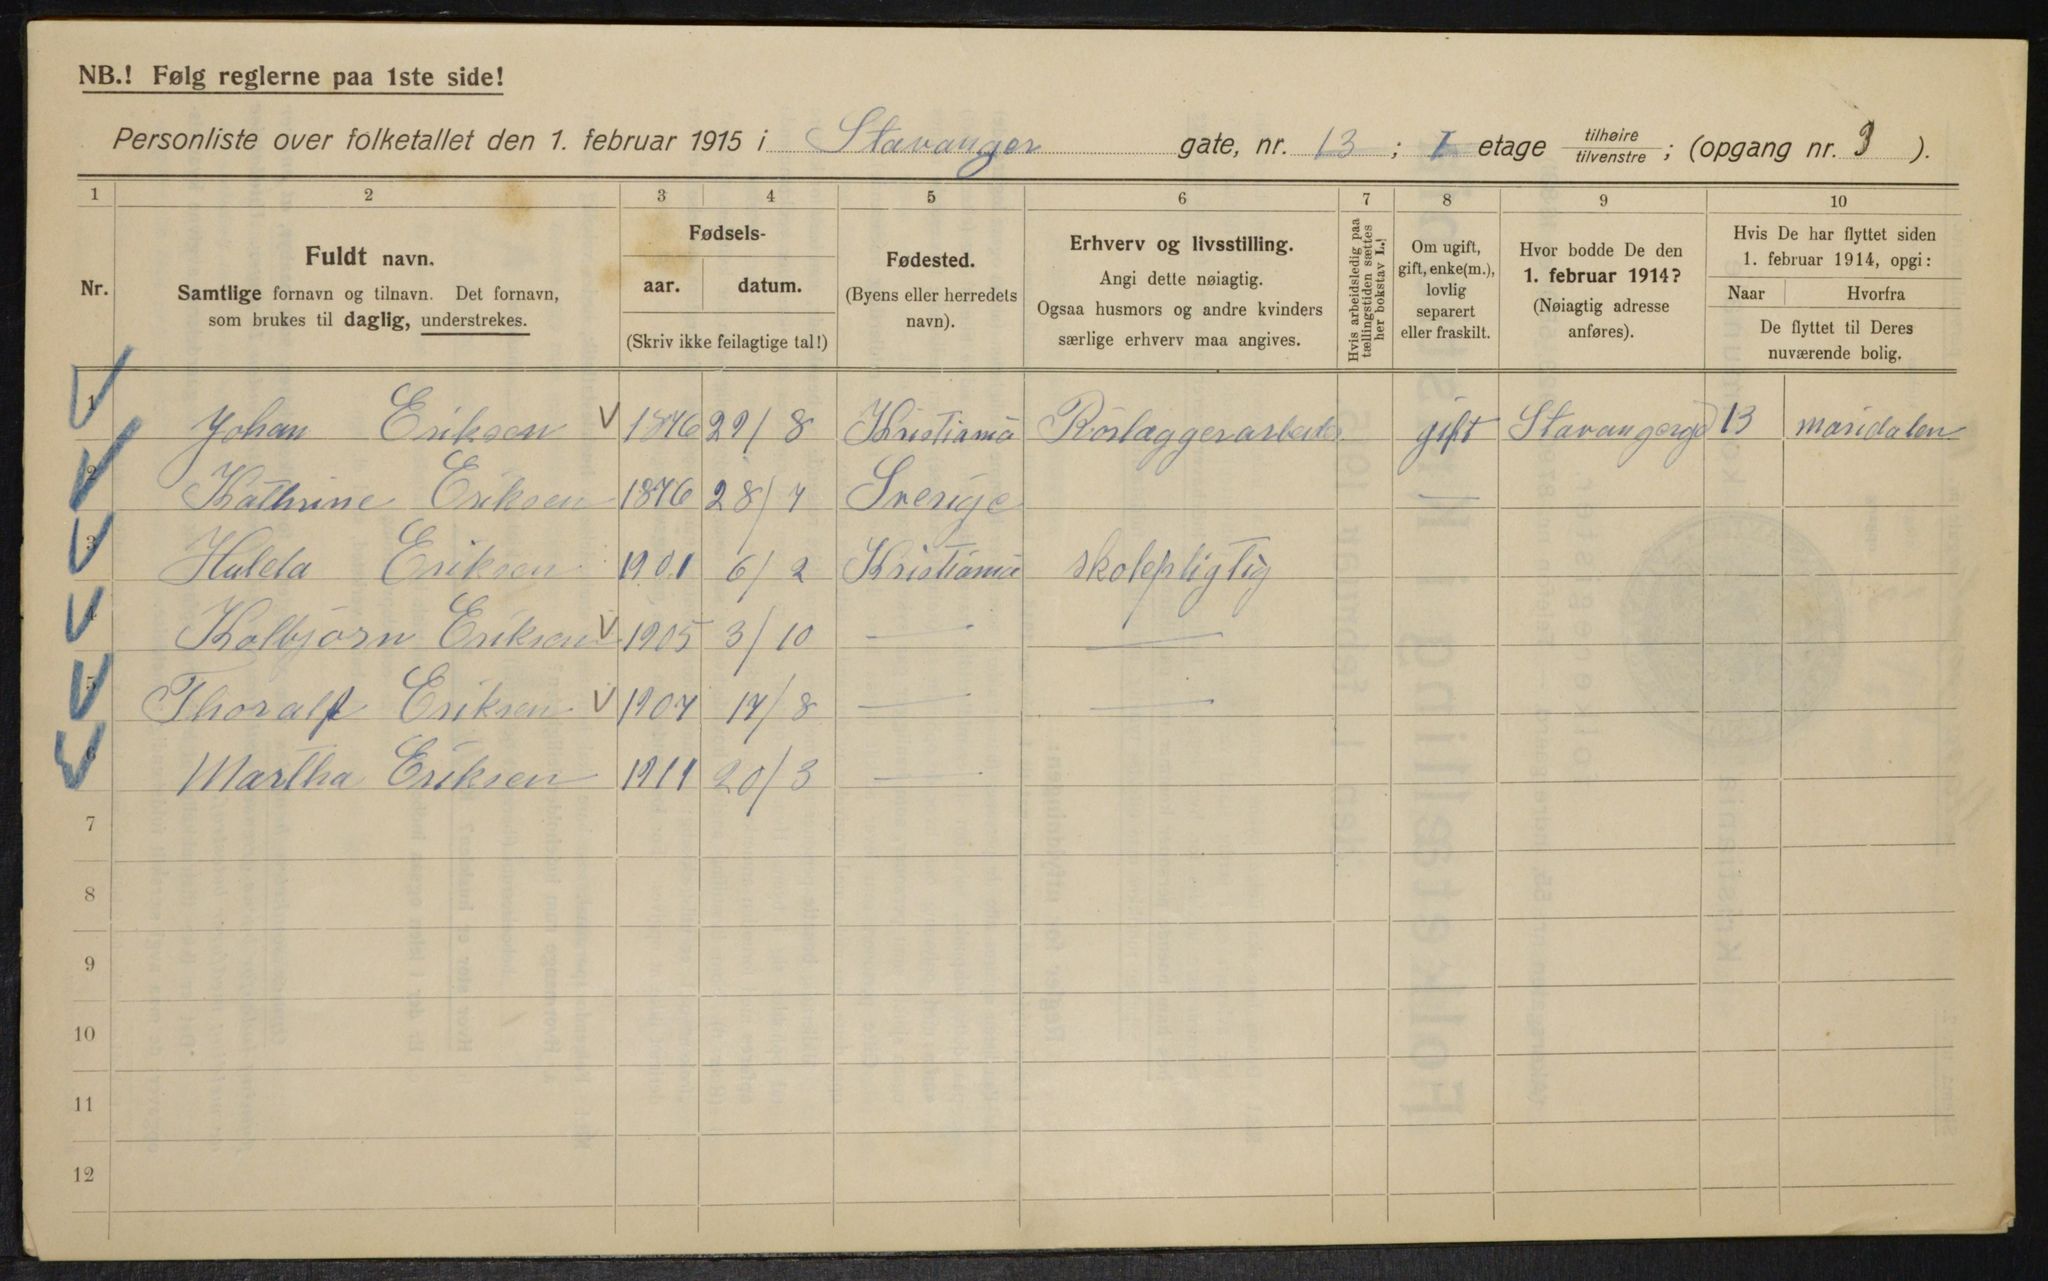 NB.! Følg reglerne paa 1ste side!
Personliste over folketallet den 1. februar 1915 i Stavanger gate, nr. 13 ; I etage tilhøire/tilvenstre ; (opgang nr. 3 ).
1 2 3 4 5 6 7 8 9 10
Nr.
Fuldt navn.
Samtlige fornavn og tilnavn. Det fornavn,
som brukes til daglig, understrekes.
Fødsels-
aar. datum.
(Skriv ikke feilagtige tal!)
Fødested.
(Byens eller herredets
navn).
Erhverv og livsstilling.
Angi dette nøiagtig.
Ogsaa husmors og andre kvinders
særlige erhverv maa angives.
Hvis arbeidsledig paa
tællingstiden sættes
her bokstav L.)
Om ugift,
gift, enke(m.),
lovlig
separert
eller fraskilt.
Hvor bodde De den
1. februar 1914?
(Nøiagtig adresse
anføres).
Hvis De har flyttet siden
1. februar 1914, opgi:
Naar Hvorfra
De flyttet til Deres
nuværende bolig.
1 Johan Eriksen V 1876 29/8 Kristiania Rörlæggerarbeider gift Stavangergd 13 maridalen
2 Kathrine Eriksen 1876 28/7 Sverige —
3 Hulda Eriksen 1901 6/2 Kristiania skolepligtig
4 Kolbjörn Eriksen V 1905 3/10 — —
5 Thoralf Eriksen V 1907 17/8 — —
6 Martha Eriksen 1911 20/3 —
7
8
9
10
11
12